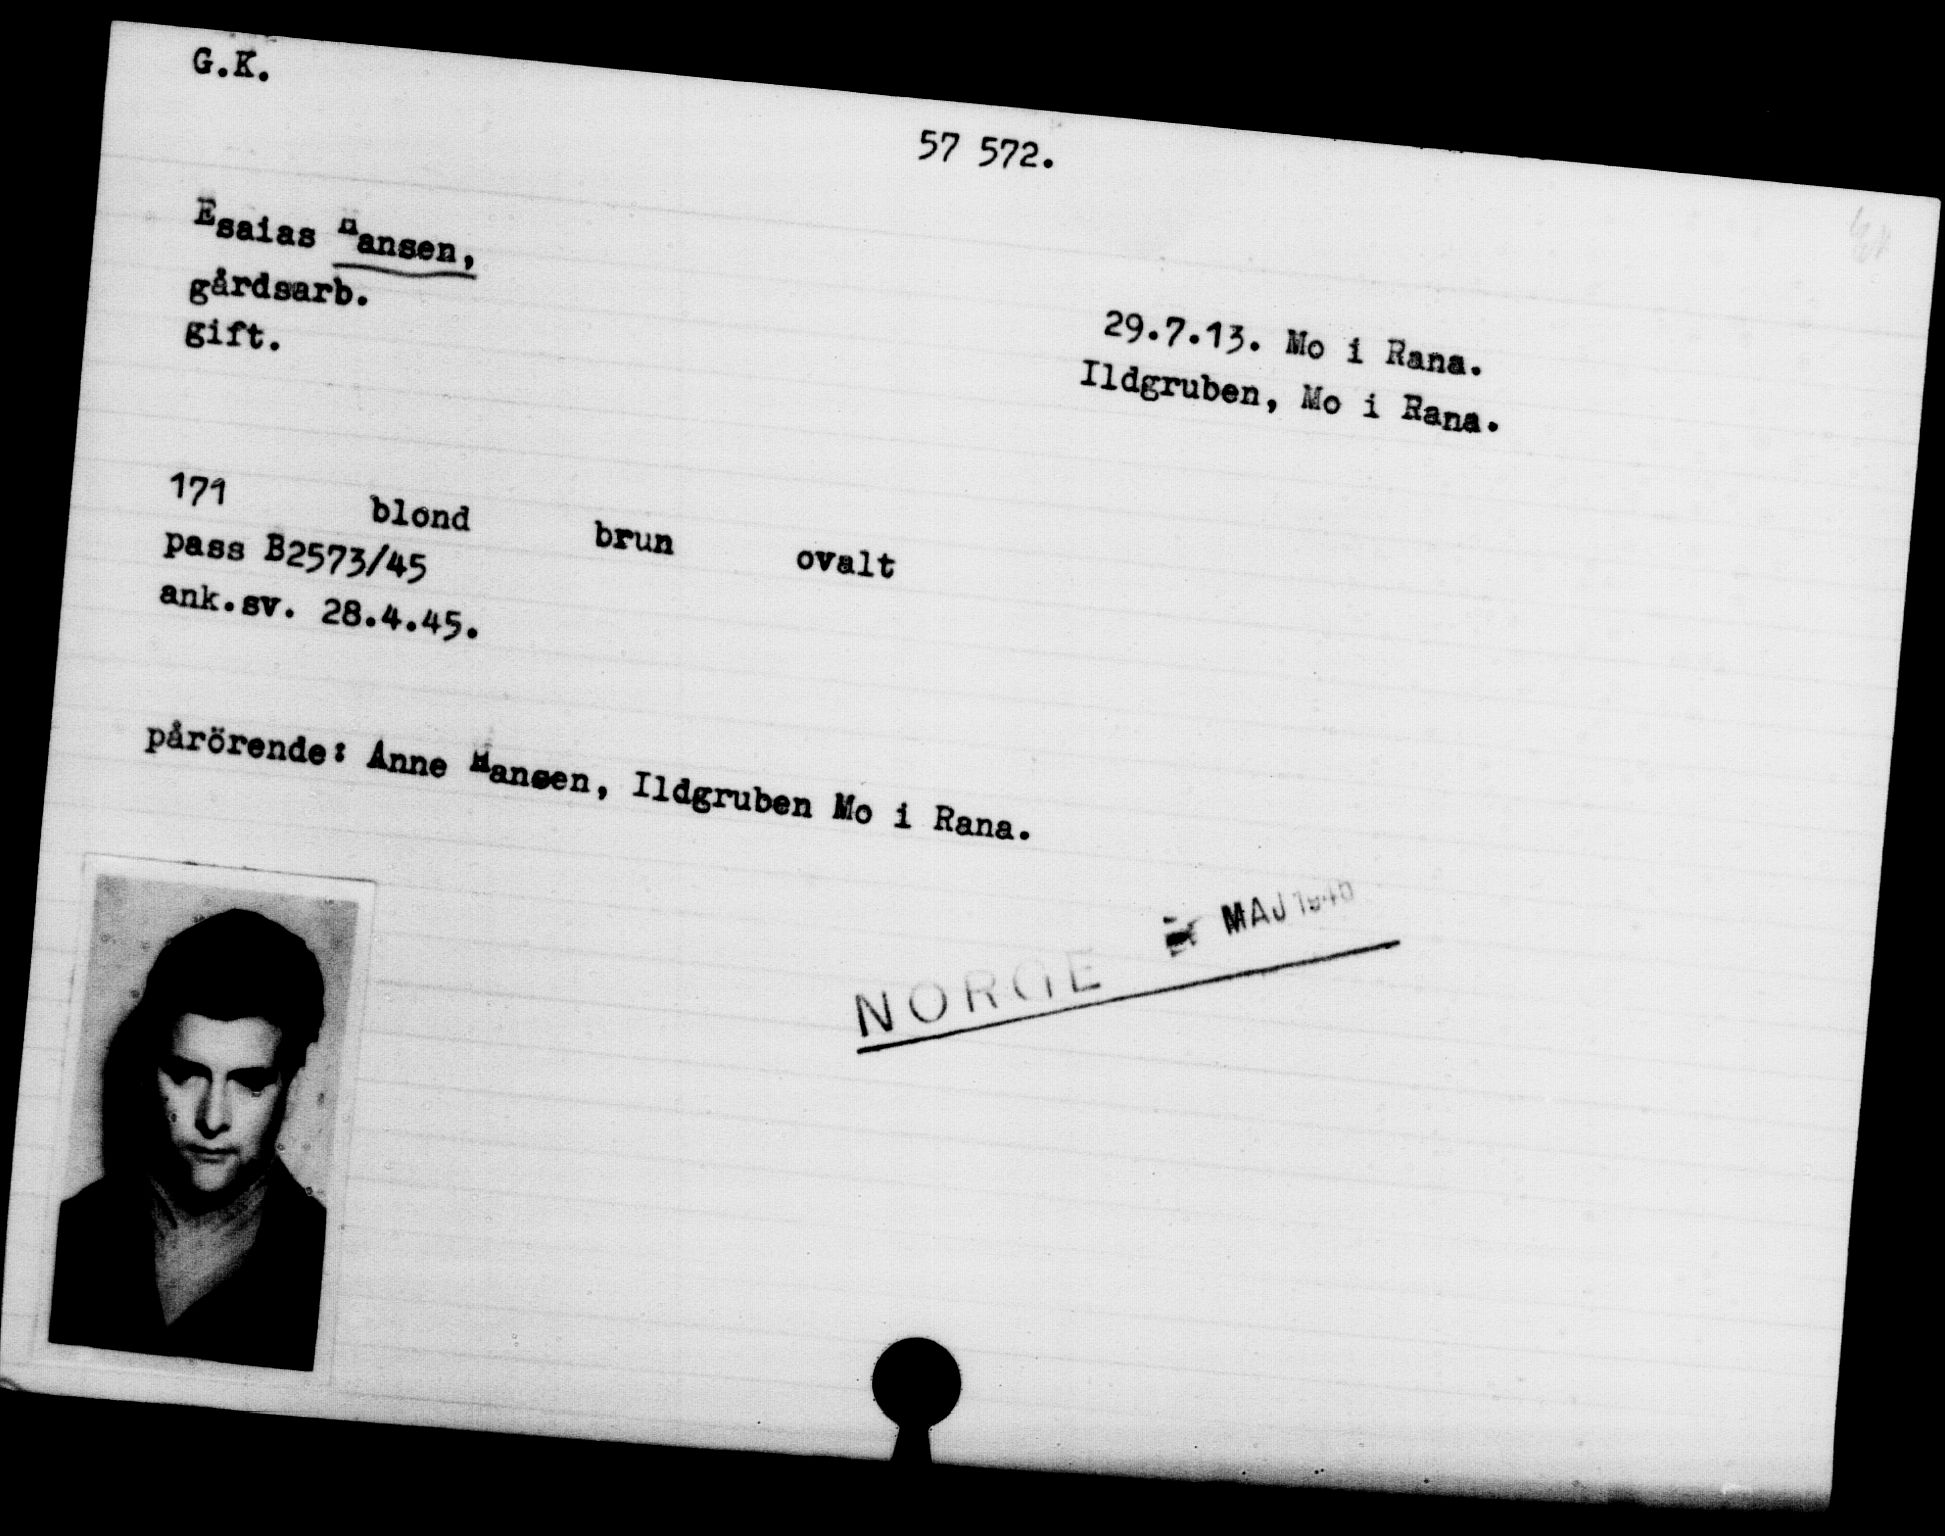 G.K.
57 572.
Esaias Hansen,
gårdsarb.
gift.
29.7.13. Mo i Rana.
Ildgruben, Mo i Rana.
171 blond brun ovalt
pass B2573/45
ank.sv. 28.4.45.
pårörende: Anne Hansen, Ildgruben Mo i Rana.
MAJ
NORGE